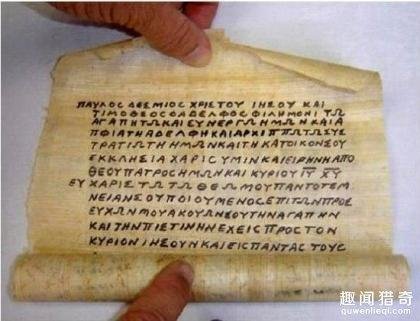 ΠΑΥΛΟΣ ΔΕΣΜΙΟΣ ΧΡΙΣΤΟΥ ΙΗΣΟΥ ΚΑΙ
ΤΙΜΟΘΕΟΣ Ο ΑΔΕΛΦΟΣ ΦΙΛΗΜΟΝΙ ΤΩ
ΑΓΑΠΗΤΩ ΚΑΙ ΣΥΝΕΡΓΩ ΗΜΩΝ ΚΑΙ Α
ΠΦΙΑ ΤΗ ΑΔΕΛΦΗ ΚΑΙ ΑΡΧΙΠΠΩ ΤΩ ΣΥΣ
ΤΡΑΤΙΩΤΗ ΗΜΩΝ ΚΑΙ ΤΗ ΚΑΤ ΟΙΚΟΝ ΣΟΥ
ΕΚΚΛΗΣΙΑ ΧΑΡΙΣ ΥΜΙΝ ΚΑΙ ΕΙΡΗΝΗ ΑΠΟ
ΘΕΟΥ ΠΑΤΡΟΣ ΗΜΩΝ ΚΑΙ ΚΥΡΙΟΥ ΙΥ ΧΥ
ΕΥΧΑΡΙΣΤΩ ΤΩ ΘΕΩ ΜΟΥ ΠΑΝΤΟΤΕ Μ
ΝΕΙΑΝ ΣΟΥ ΠΟΙΟΥΜΕΝΟΣ ΕΠΙ ΤΩΝ ΠΡΟΣ
ΕΥΧΩΝ ΜΟΥ ΑΚΟΥΩΝ ΣΟΥ ΤΗΝ ΑΓΑΠΗΝ
ΚΑΙ ΤΗΝ ΠΙΣΤΙΝ ΗΝ ΕΧΕΙΣ ΠΡΟΣ ΤΟΝ
ΚΥΡΙΟΝ ΙΗΣΟΥΝ ΚΑΙ ΕΙΣ ΠΑΝΤΑΣ ΤΟΥΣ
趣闻猎奇
quwenlieqi.com